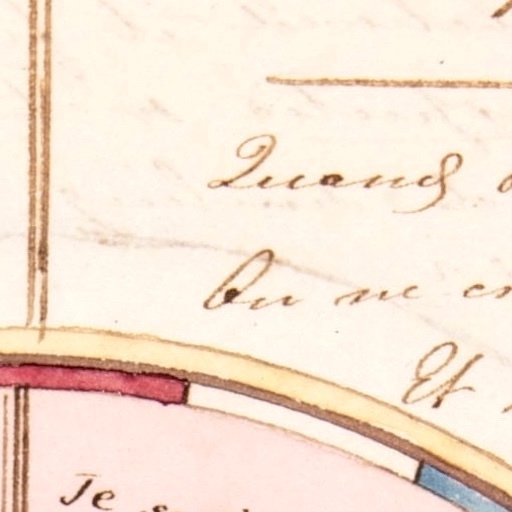 Quand
On ne
Et
Je